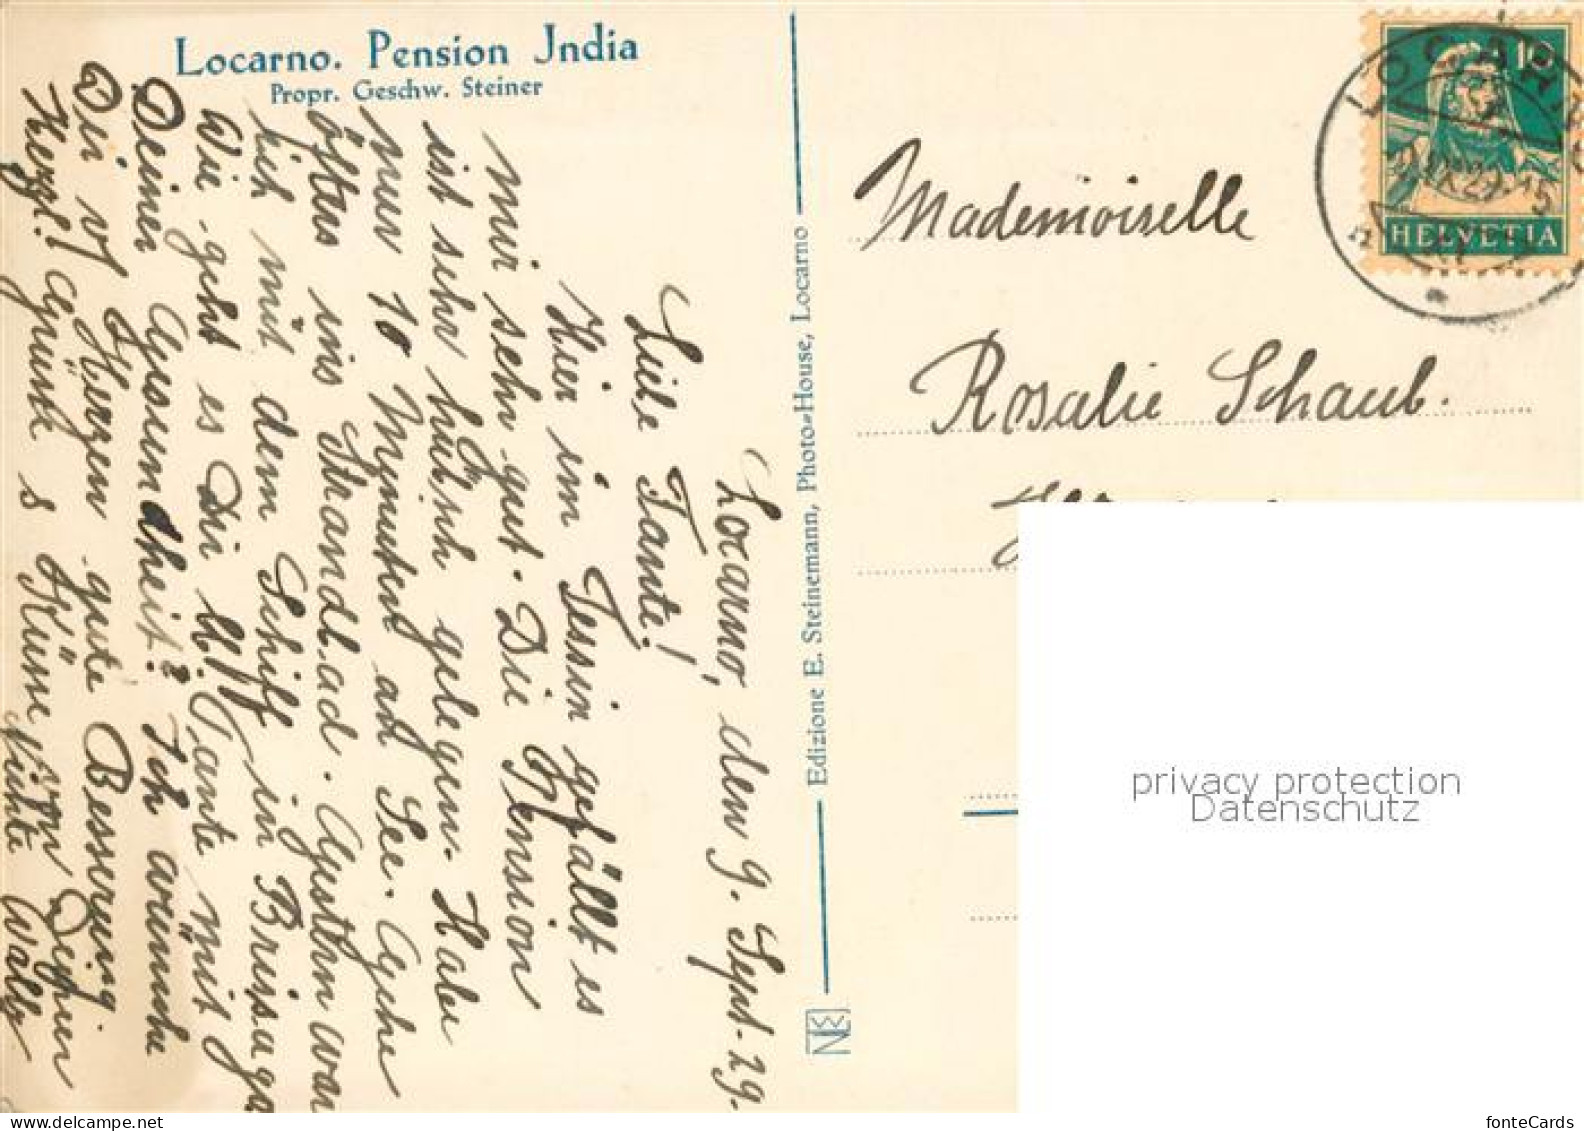 Locarno. Pension Jndia
Propr. Geschw. Steiner
Locarno, den 9. Sept. 29.
Liebe Tante!
Hier im Tessin gefällt es
mir sehr gut. Die Pension
ist sehr hübsch gelegen. Habe
nur 10 Minuten an See. Gehe
öfters ins Strandbad. Gestern war
ich mit dem Schiff in Brissago
Wie geht es Dir lb. Tante mit
Deiner Gesundheit? Ich wünsche
Dir v. Herzen gute Besserung.
Herzl. Grüsse & Küsse von Deiner
Nichte Wally
Edizione E. Steinemann, Photo-House, Locarno
NE
Mademoiselle
Rosalie Schaub.
10
HELVETIA
LOCARNO
privacy protection
Datenschutz
fonteCards